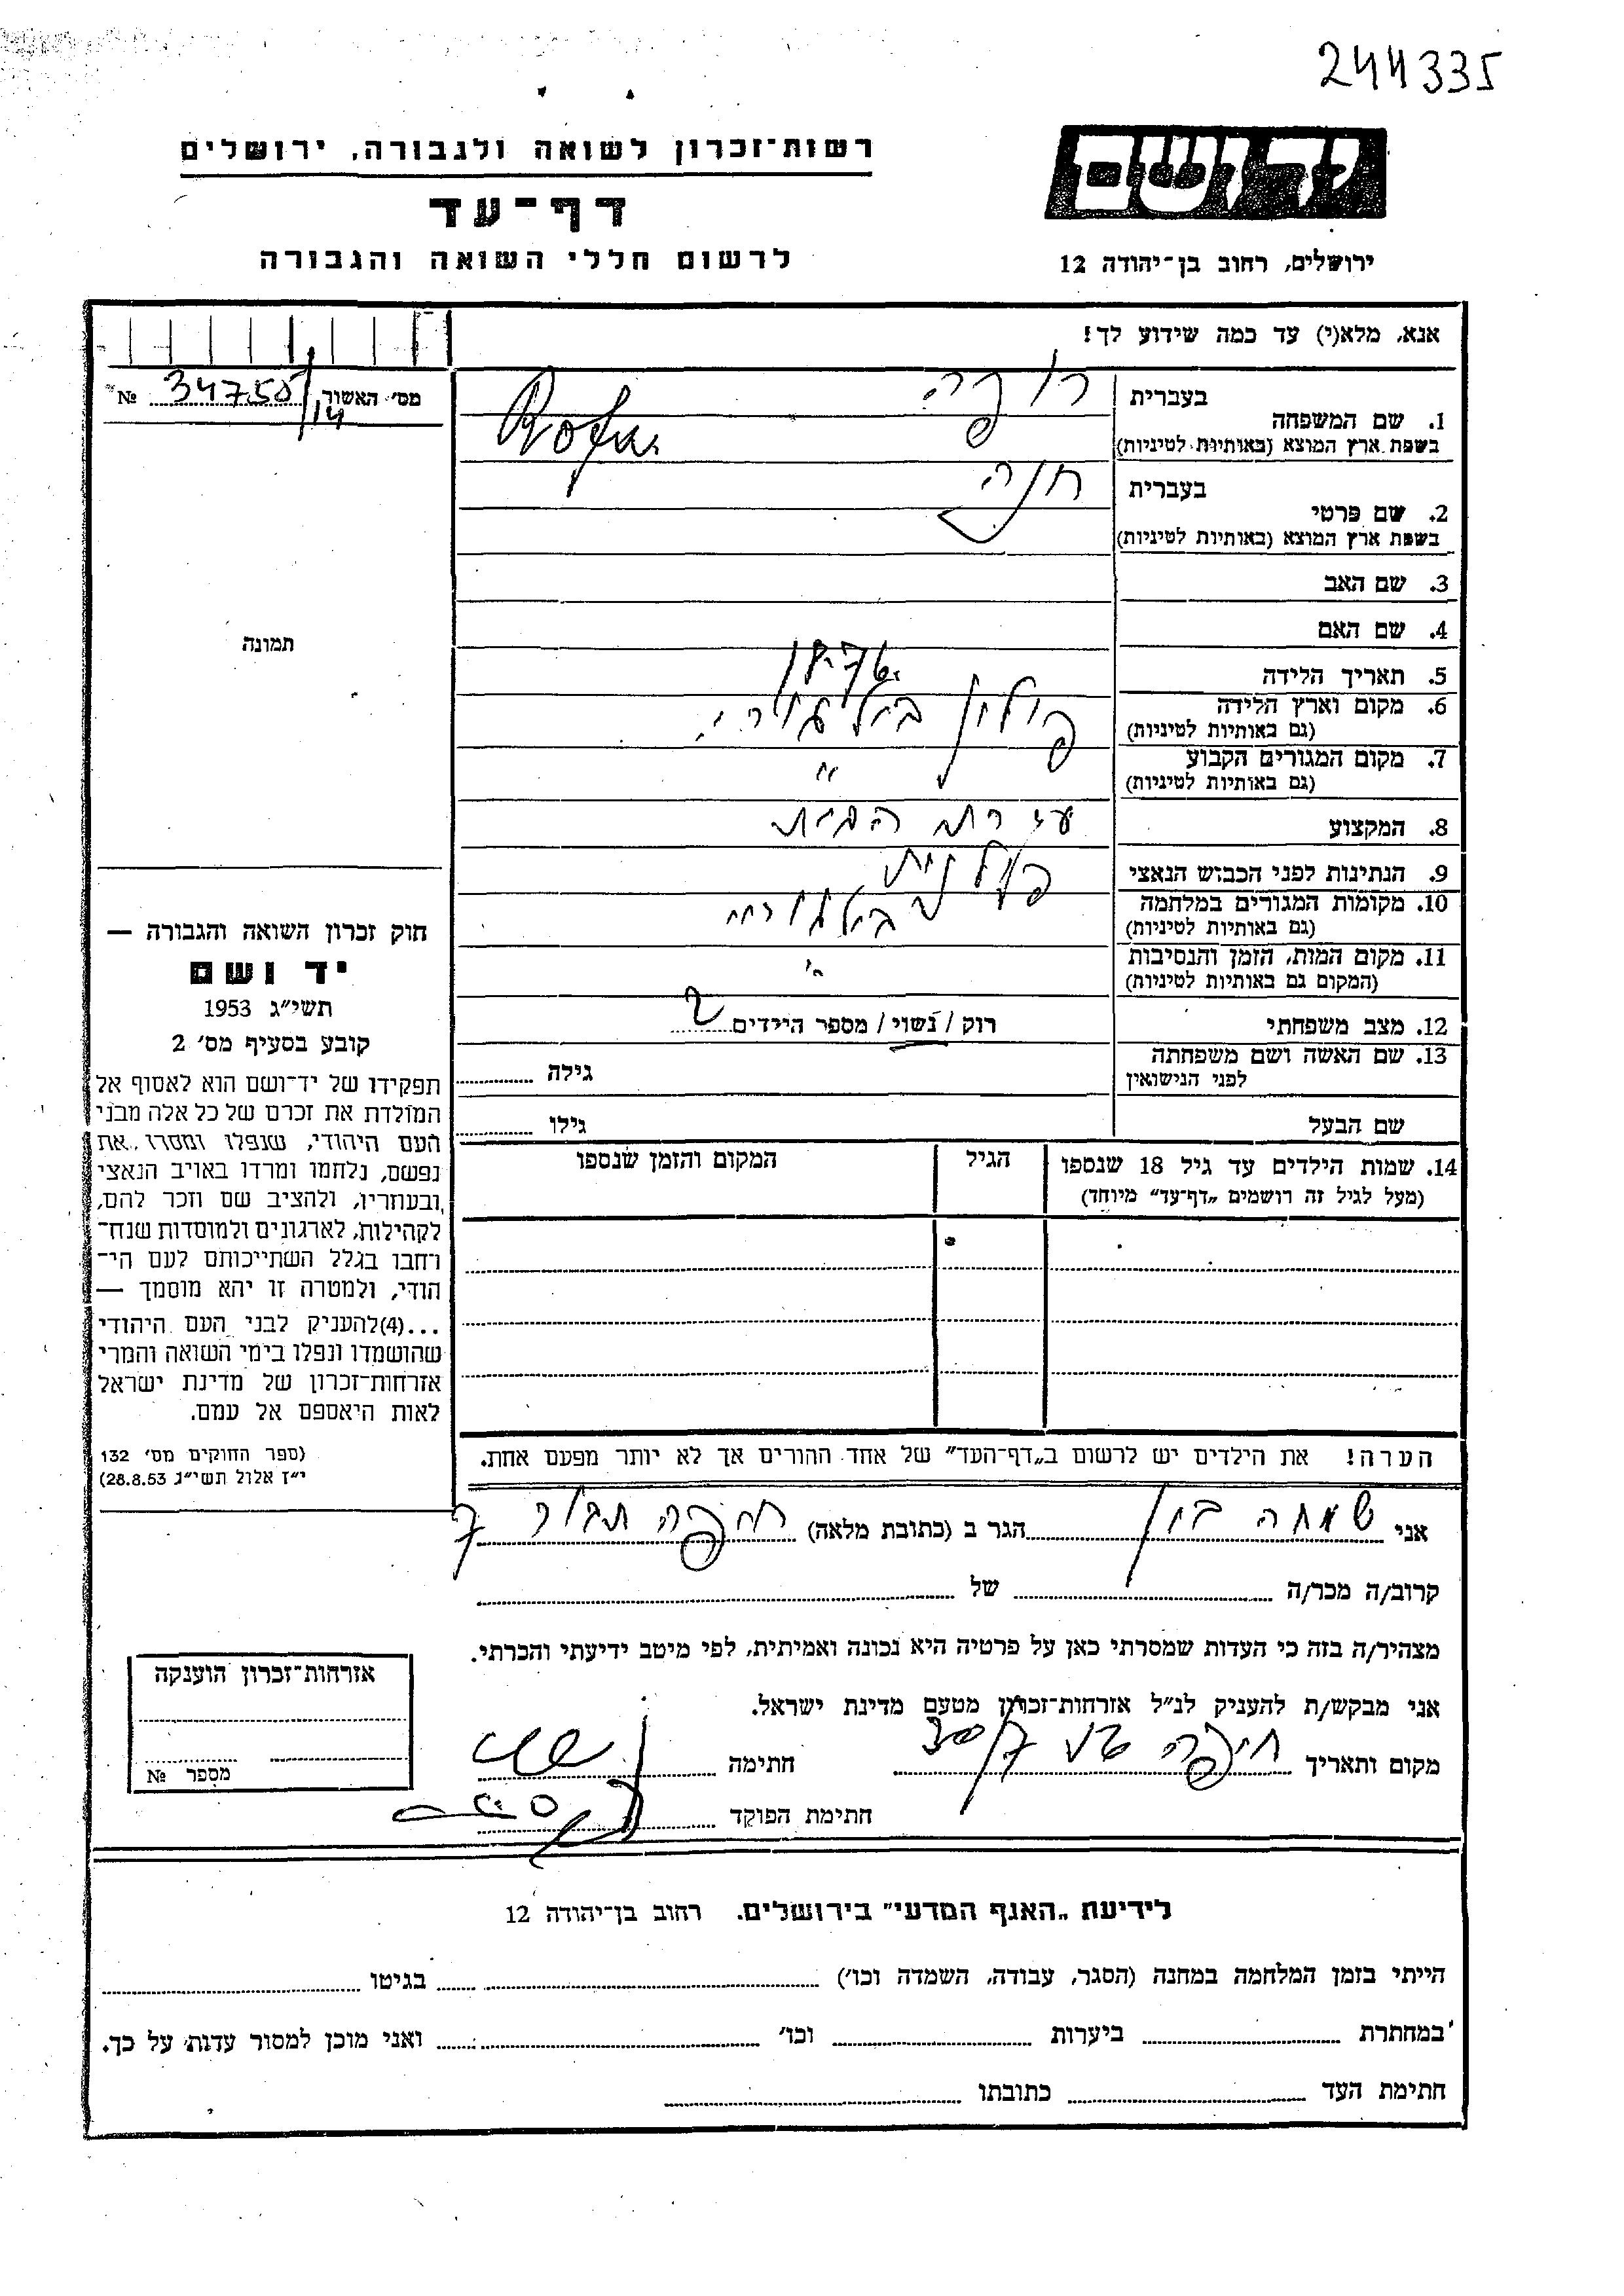 244335
רשות־זכרון לשואה ולגבורה, ירושלים
דף־עד
לרשום חללי השואה והגבורה
ידושם
ירושלים, רחוב בן־יהודה 12
אנא, מלא(י) עד כמה שידוע לך!
מס׳ האשור 34755/14 №
תמונה
בעברית
1. שם המשפחה
בשפת ארץ המוצא (באותיות לטיניות)
בעברית חנה
2. שם פרטי
בשפת ארץ המוצא (באותיות לטיניות)
3. שם האב
4. שם האם
5. תאריך הלידה
6. מקום וארץ הלידה פולין בילגוריי
(גם באותיות לטיניות)
7. מקום המגורים הקבוע "
(גם באותיות לטיניות)
8. המקצוע עזרת הבית
9. הנתינות לפני הכבוש הנאצי פולנית
10. מקומות המגורים במלחמה בילגוריי
(גם באותיות לטיניות)
11. מקום המות, הזמן והנסיבות "
(המקום גם באותיות לטיניות)
12. מצב משפחתי רוק / נשוי / מספר הילדים 2
13. שם האשה ושם משפחתה
לפני הנישואין גילה
שם הבעל גילו
14. שמות הילדים עד גיל 18 שנספו הגיל המקום והזמן שנספו
(מעל לגיל זה רושמים „דף־עד” מיוחד)
הערה! את הילדים יש לרשום ב„דף־העד” של אחד ההורים אך לא יותר מפעם אחת.
חוק זכרון השואה והגבורה —
יד ושם
תשי״ג 1953
קובע בסעיף מס׳ 2
תפקידו של יד־ושם הוא לאסוף אל
המולדת את זכרם של כל אלה מבני
העם היהודי, שנפלו ומסרו את
נפשם, נלחמו ומרדו באויב הנאצי
ובעוזריו, ולהציב שם וזכר להם,
לקהילות, לארגונים ולמוסדות שנח־
רחבו בגלל השתייכותם לעם הי־
הודי, ולמטרה זו יהא מוסמך —
...(4)להעניק לבני העם היהודי
שהושמדו ונפלו בימי השואה והמרי
אזרחות־זכרון של מדינת ישראל
לאות היאספם אל עמם.
(ספר החוקים מס׳ 132
י״ז אלול תשי״ג 28.8.53)
אני שמחה בון הגר ב (כתובת מלאה) חיפה תבור 7
קרוב/ה מכר/ה של
מצהיר/ה בזה כי העדות שמסרתי כאן על פרטיה היא נכונה ואמיתית, לפי מיטב ידיעתי והכרתי.
אני מבקש/ת להעניק לנ״ל אזרחות־זכרון מטעם מדינת ישראל.
מקום ותאריך חיפה חתימה
חתימת הפוקד
אזרחות־זכרון הוענקה
מספר №
לידיעת „האגף המדעי” בירושלים. רחוב בן־יהודה 12
הייתי בזמן המלחמה במחנה (הסגר, עבודה, השמדה וכו׳) בגיטו
במחתרת ביערות וכו׳ ואני מוכן למסור עדות על כך.
חתימת העד כתובתו